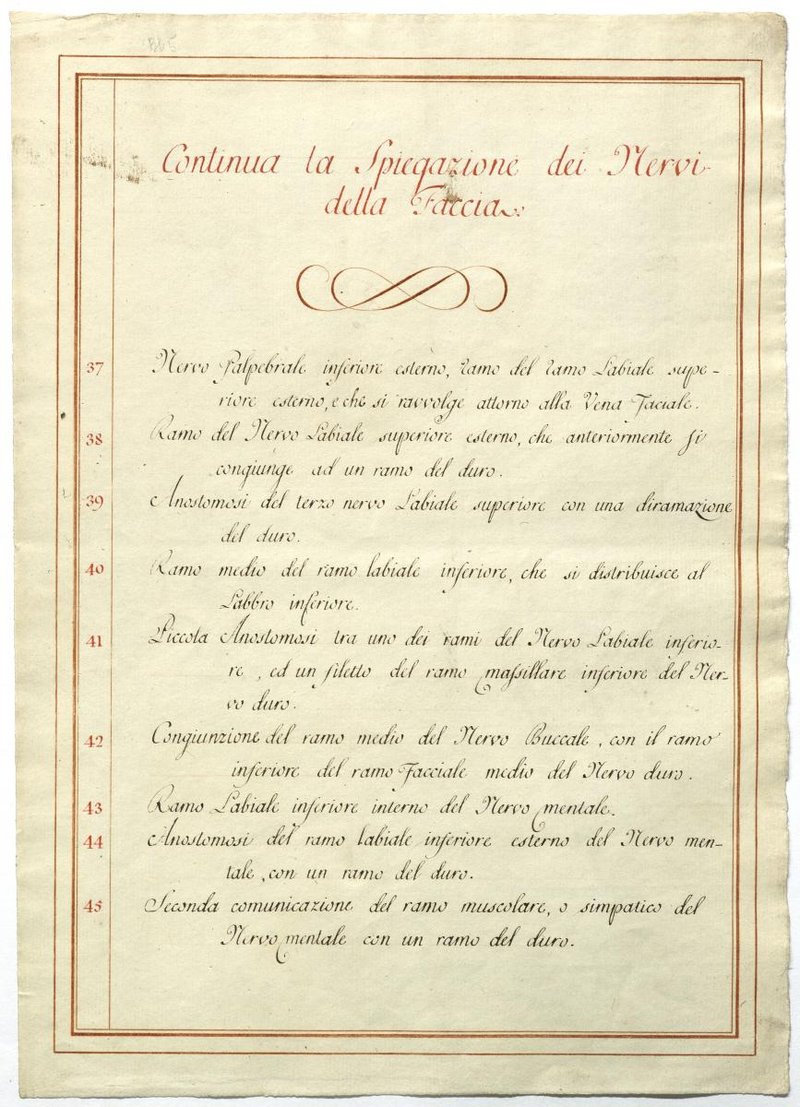 Continua la Spiegazione dei Nervi
della Faccia.
37 Nervo Palpebrale inferiore esterno, ramo del ramo Labiale supe-
riore esterno, e che si ravvolge attorno alla Vena Faciale.
38 Ramo del Nervo Labiale superiore esterno, che anteriormente si
congiunge ad un ramo del duro.
39 Anostomosi del terzo nervo Labiale superiore con una diramazione
del duro.
40 Ramo medio del ramo labiale inferiore, che si distribuisce al
Labbro inferiore.
41 Piccola Anostomosi tra uno dei rami del Nervo Labiale inferio-
re, ed un filetto del ramo massillare inferiore del Ner-
vo duro.
42 Congiunzione del ramo medio del Nervo Buccale, con il ramo
inferiore del ramo Facciale medio del Nervo duro.
43 Ramo Labiale inferiore interno del Nervo mentale.
44 Anostomosi del ramo labiale inferiore esterno del Nervo men-
tale, con un ramo del duro.
45 Seconda comunicazione del ramo muscolare, o simpatico del
Nervo mentale con un ramo del duro.